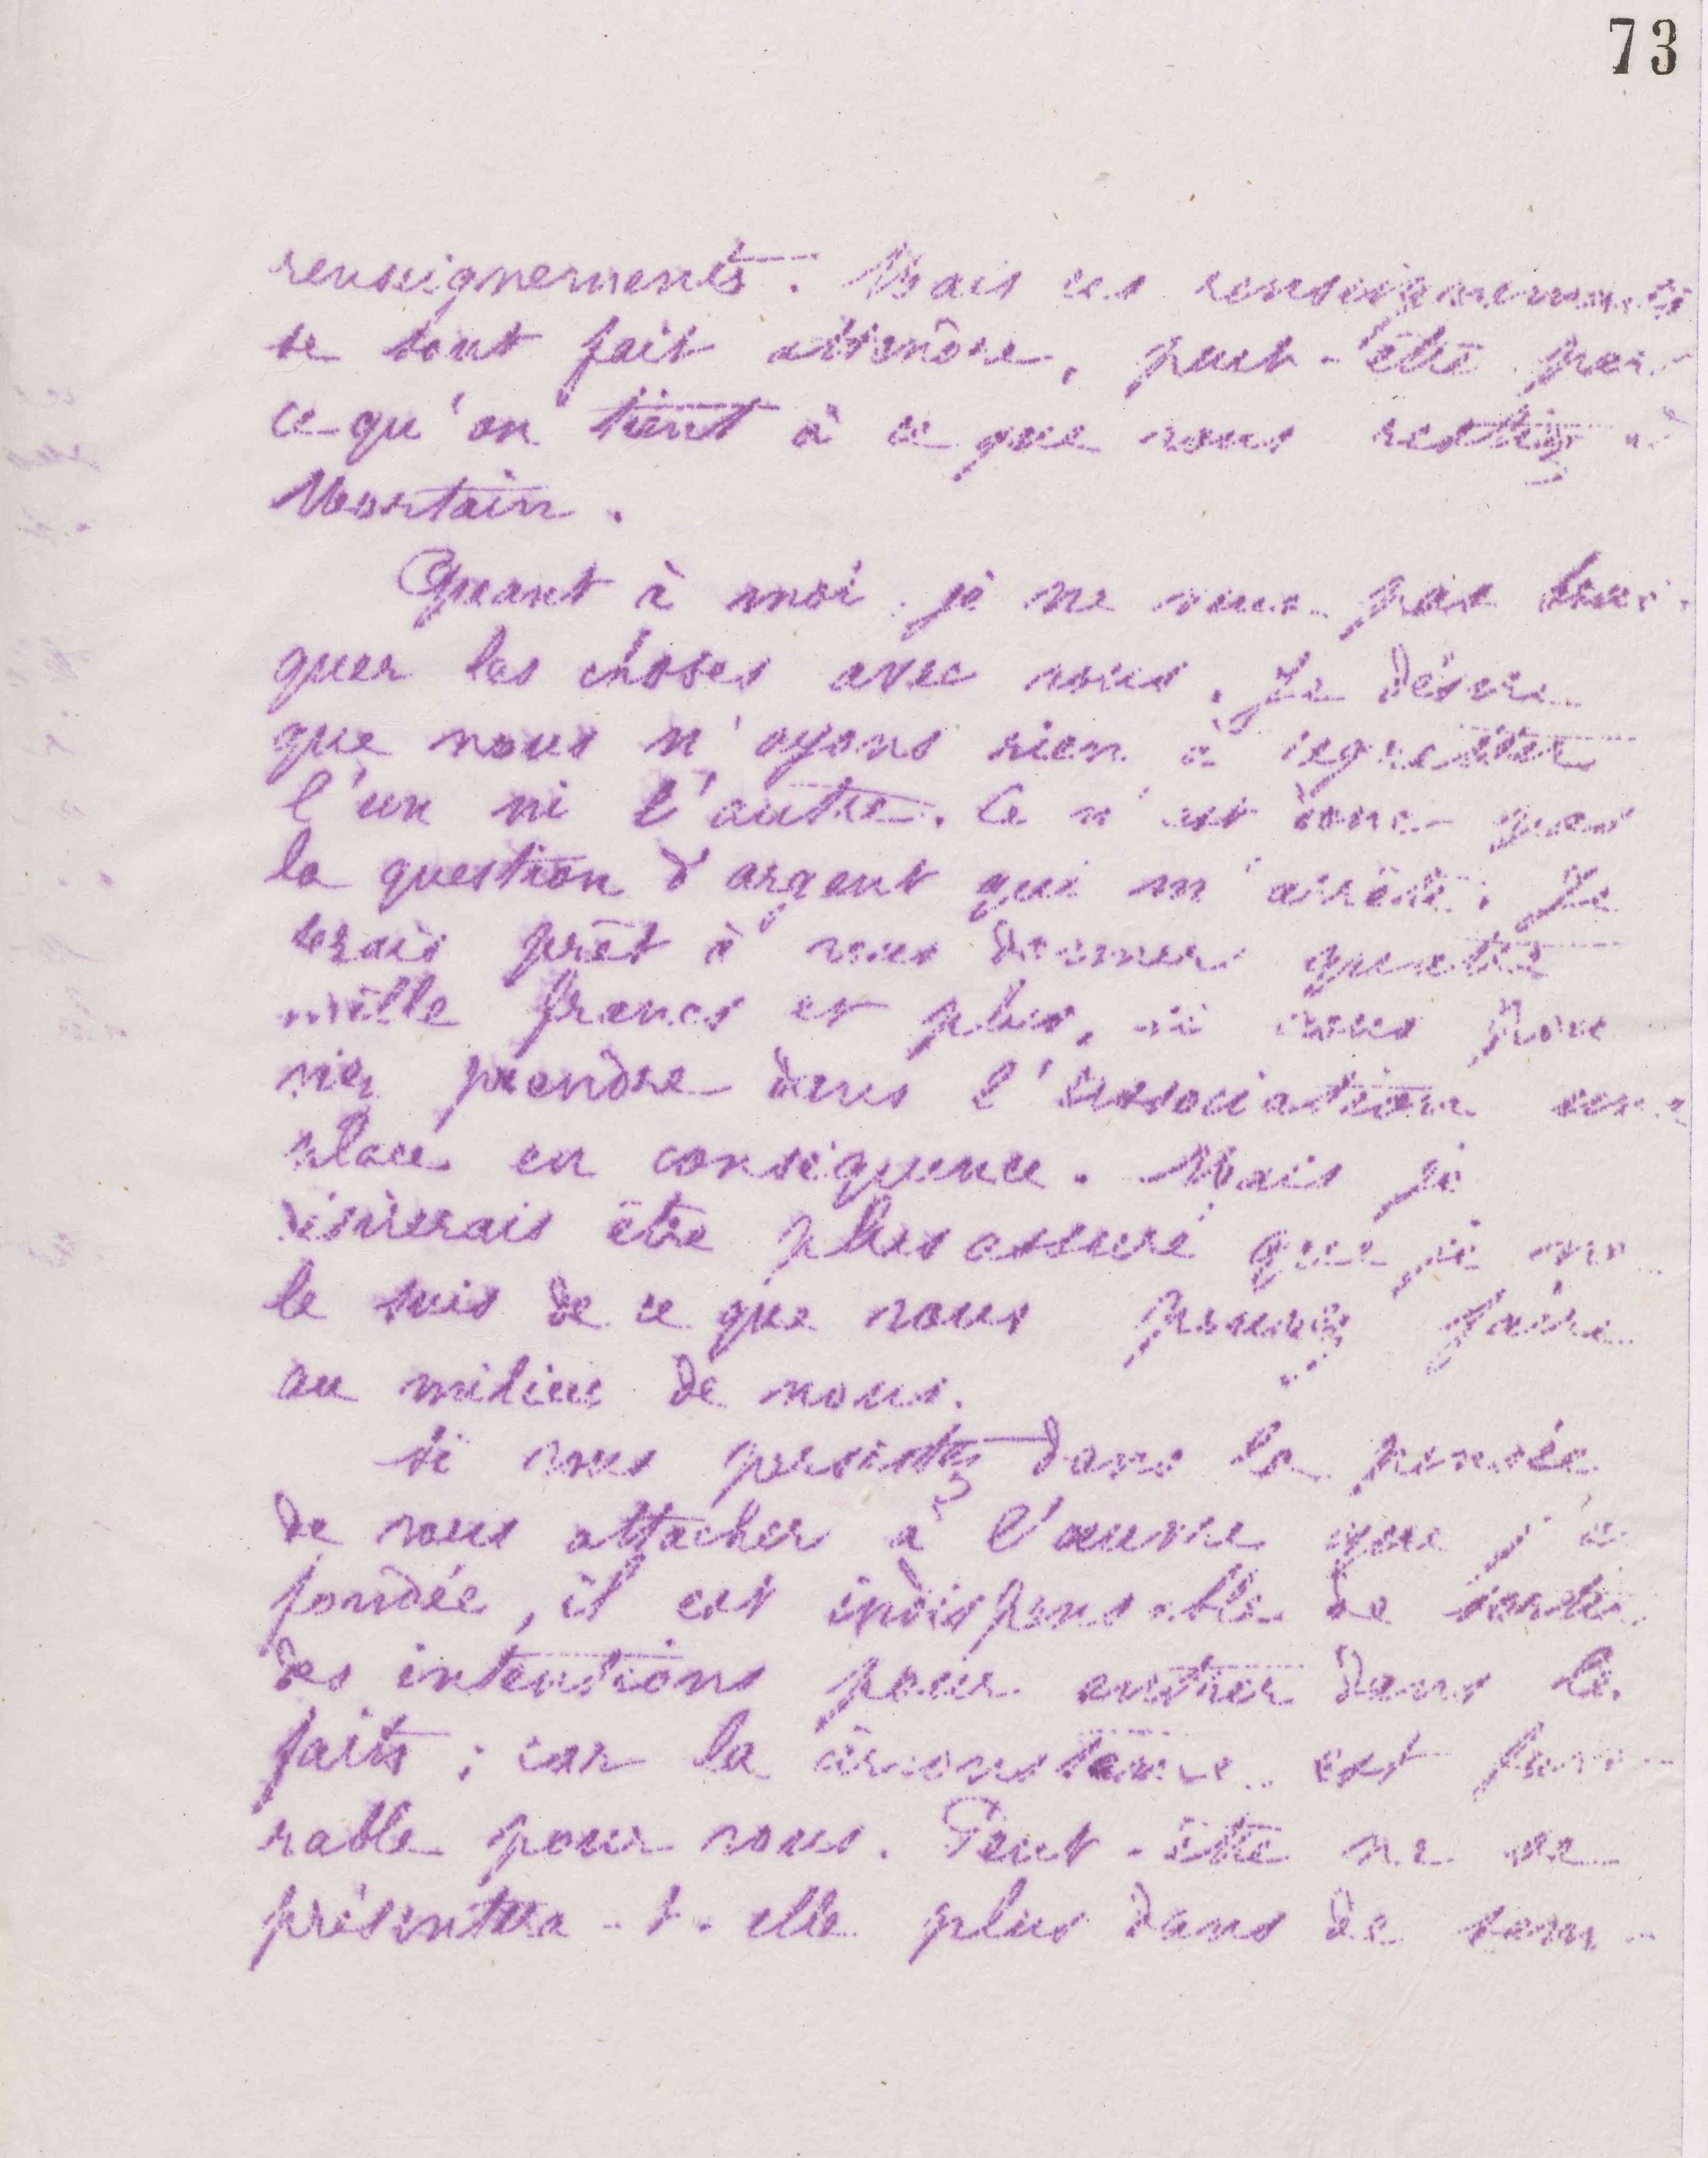 73
renseignements. Mais ces renseignements
se sont fait attendre, peut-être par
ce qu'on tient à ce que vous restiez à
Mortain.
Quant à moi je ne veux pas brus
quer les choses avec vous. Je désire
que nous n'ayons rien à regretter
l'un ni l'autre. Ce n'est donc pas
la question d'argent qui m'arrête. Je
serais prêt à vous donner quatre
mille francs et plus, si vous pou
viez prendre dans l'association une
place en conséquence. Mais je
désirerais être plus assuré que je ne
le suis de ce que vous pouvez faire
au milieu de nous.
Si vous persistez dans la pensée
de vous attacher à l'œuvre que j'ai
fondée, il est indispensable de sortir
des intentions pour entrer dans les
faits ; car la circonstance est favo-
rable pour vous. Peut-être ne se
présentera-t-elle plus dans de sem-